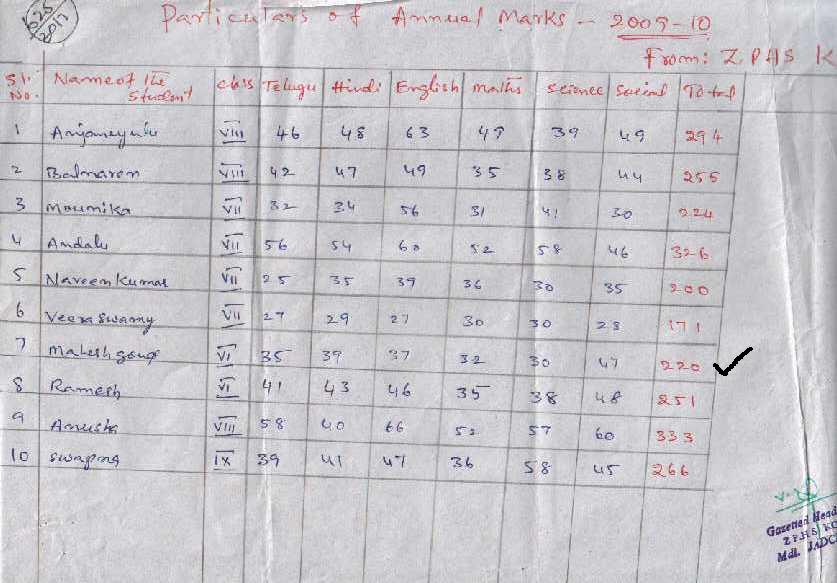 625
2017
Particulars of Annual Marks - 2009-10
From: Z P HS K
S.l. No. Name of the Student class Telugu Hindi English maths science Social Total
1 Anjaneyulu VIII 46 48 63 49 39 49 294
2 Balnaren VIII 42 47 49 35 38 44 255
3 Mounika VII 32 34 56 31 41 30 224
4 Andalu VII 56 54 60 52 58 46 326
5 Naveen Kumar VII 25 35 39 36 30 35 200
6 Veera Swamy VII 27 29 27 30 30 28 171
7 Mahesh goud VI 35 39 37 32 30 47 220
8 Ramesh VI 41 43 46 35 38 48 251
9 Anusha VIII 58 40 66 52 57 60 333
10 Swapna IX 39 41 47 36 58 45 266
Gazetted Head
Z P.H S KO
Mdl. JADC